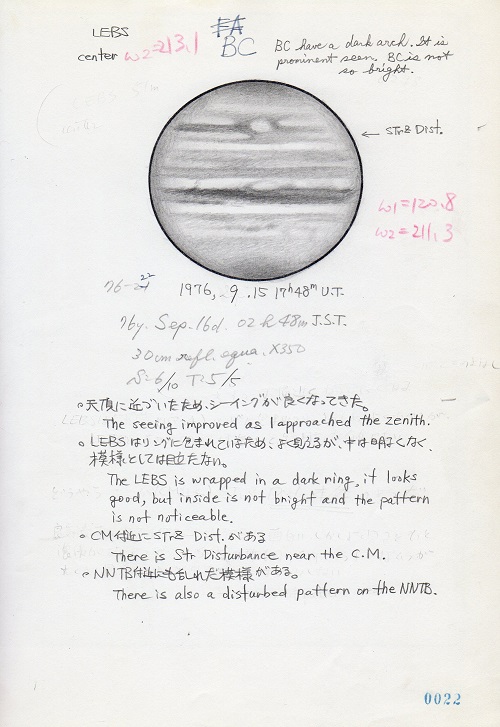 LEBS
center ω2=213.1
FA
BC
BC have a dark arch. It is
prominent seen. BC is not
so bright.
← STrZ Dist.
ω1=120.8
ω2=211.3
76-21 22
1976, 9.15 17h48m U.T.
76y. Sep. 16d. 02h48m J.S.T.
30cm refl. equa. X350
S=6/10 T=5/5
◦天頂に近づいたため、シーイングが良くなってきた。
The seeing improved as I approached the zenith.
◦LEBSはリングに包まれているため、よく見えるが、中は明るくなく、
模様としては目立たない。
The LEBS is wrapped in a dark ring, it looks
good, but inside is not bright and the pattern
is not noticeable.
◦CM付近にSTrZ Dist.がある
There is Str Disturbance near the C.M.
◦NNTB付近にも乱れた模様がある。
There is also a disturbed pattern on the NNTB.
0022